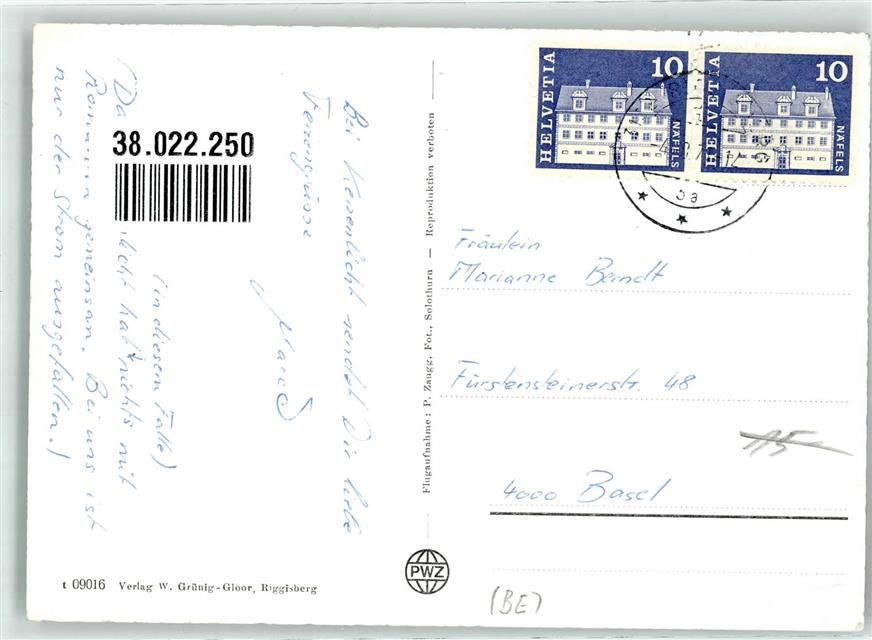 Bei Kerzenlicht sendet Dir liebe
Feriengrüsse
Marcel
(in diesem Falle)
(Da
licht hat nichts mit
Romanik gemeinsam. Bei uns ist
nur der Strom ausgefallen!)
38.022.250
t 09016 Verlag W. Grünig-Gloor, Riggisberg
Flugaufnahme: P. Zaugg, Fot., Solothurn — Reproduktion verboten
PWZ
HELVETIA 10 NÄFELS
HELVETIA 10 NÄFELS
Fräulein
Marianne Berndt
Fürstensteinerstr. 48
4000 Basel
115
(BE)